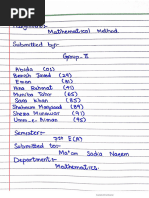 Assignment:-
Mathematical Method
Submitted by:-
Group-II
Abida (01)
Benish Javed (29)
Eman (81)
Hina Rahmat (41)
Munifa Tahir (65)
Sara Khan (85)
Shahnum Maqsood (89)
Sheeza Munawar (91)
Umm-e-Aiman (95)
Semester:-
7th E(A)
Submitted to:-
Ma'am Sadia Naeem
Department:-
Mathematics.